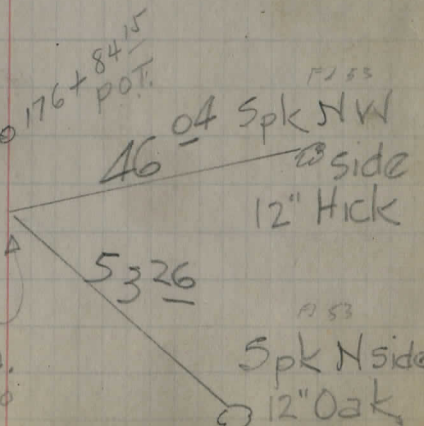 176+84 15
POT.
46 04 Spk NW
side
12" Hick
53 26
Spk N side
12" Oak